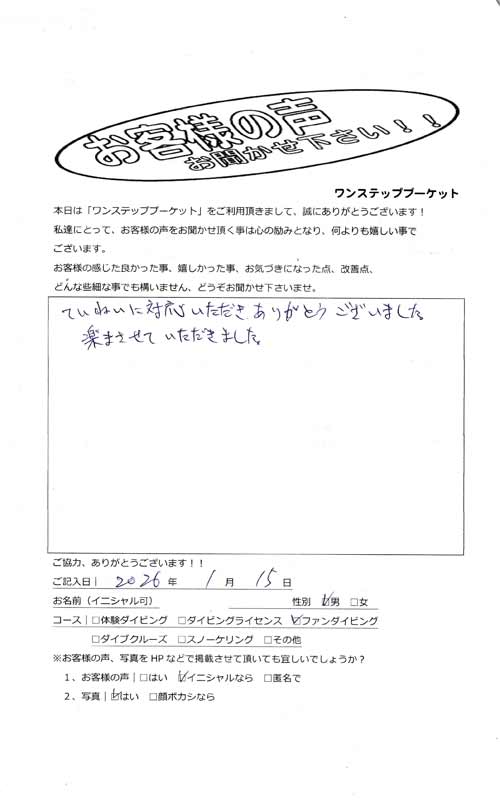 お客様の声
お聞かせ下さい！！
ワンステッププーケット
本日は「ワンステッププーケット」をご利用頂きまして、誠にありがとうございます！
私達にとって、お客様の声をお聞かせ頂く事は心の励みとなり、何よりも嬉しい事で
ございます。
お客様の感じた良かった事、嬉しかった事、お気づきになった点、改善点、
どんな些細な事でも構いません、どうぞお聞かせ下さいませ。
ていねいに対応いただきありがとうございました。
楽まさせていただきました。
ご協力、ありがとうございます！！
ご記入日｜ 2026 年 1 月 15 日
お名前（イニシャル可） 性別 ☑男 □女
コース｜□体験ダイビング □ダイビングライセンス ☑ファンダイビング
□ダイブクルーズ □スノーケリング □その他
※お客様の声、写真を HP などで掲載させて頂いても宜しいでしょうか？
１、お客様の声｜□はい ☑イニシャルなら □匿名で
２、写真｜☑はい □顔ボカシなら